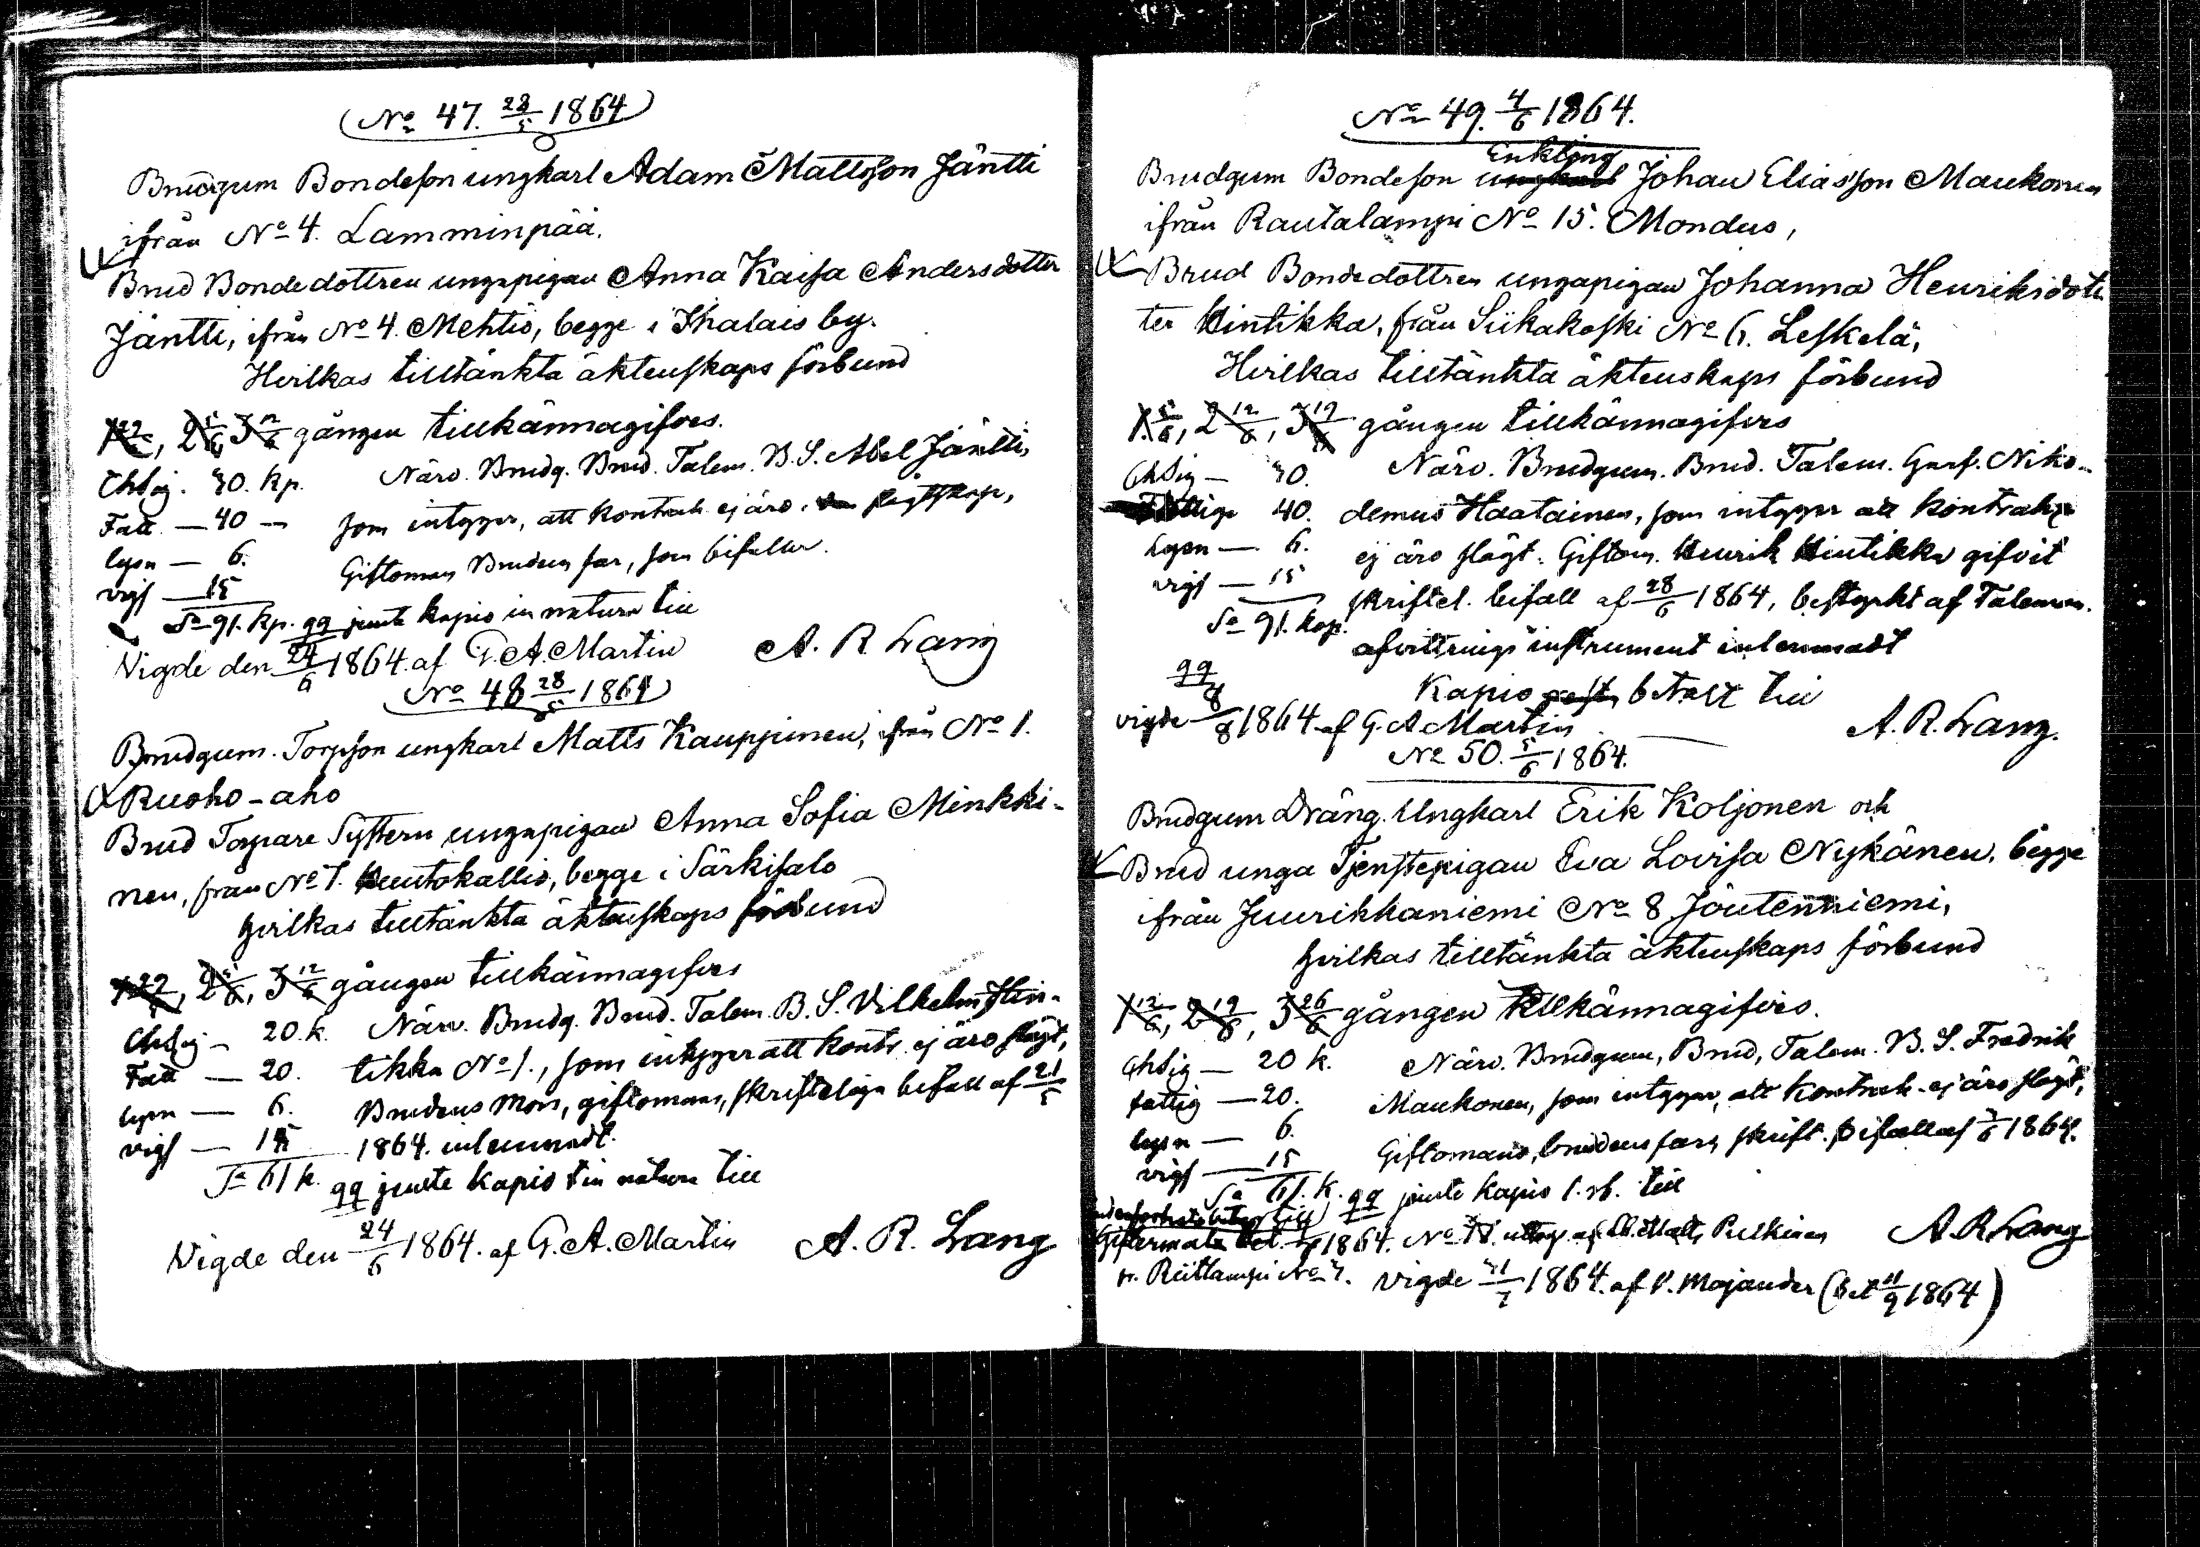 No 47. 28/5 1864
Brudgum Bondeson ungkarl Adam Mattsson Jäntti
ifrån No 4. Lamminpää.
Brud Bondedottren ungapigan Anna Kaisa Andersdotter
Jäntti, ifrån No 4. Mehtiö, begge i Ihalais by.
Hvilkas tilltänkta äktenskaps förbund
1 29/5, 2 5/6 3 12/6 gången tillkännagifves.
30. kp. Närv. Brudg. Brud. Talem. B.S. Abel Jäntti,
Fatt — 40 — som intygar, att kontrah ej äro slägtskap,
lysn — 6. Giftoman Brudens far, som bifaller.
vigs — 15
Sa 91. kp. qq jemte kapio in natura till
Vigde den 24/6 1864. af G. A. Martin A. R. Lang
No 48 28/5 1864
Brudgum. Torpson ungkarl Matts Kauppinen, ifrån No 1.
Ruoho-aho
Brud Torpare Systern ungapigan Anna Sofia Minkki-
nen, från No 7. Huutokallio, begge i Särkisalo
hvilkas tilltänkta äktenskaps förbund
1 29/5, 2 5/6, 3 12/6 gången tillkännagifves
20 k. Närv. Brudg. Brud. Talem. B. S. Vilhelm Hin-
Fatt — 20. tikka No 1., som intygar att kontr. ej äro slägt,
lysn — 6. Brudens mors, giftomans, skriftliga bifall af 21/5
vigs — 15 1864. inlemnadt.
Sa 61 k. qq jemte kapio in natura till
Vigde den 24/6 1864. af G. A. Martin A. R. Lang
No 49. 4/6 1864.
Enkling
Brudgum Bondeson ungkarl Johan Eliasson Maukonen
ifrån Rautalampi No 15. Mondus,
Brud Bondedottren ungapigan Johanna Henriksdot
ter Hintikka, från Siikakoski No 6. Leskelä,
Hvilkas tilltänkta äktenskaps förbund
1. 5/6, 2 12/6, 3 19/6 gången tillkännagifves
30. Närv. Brudgum. Brud. Talem. Niko-
Fattige 40. demus Haatainen, som intygar att kontrah
Lysn — 6. ej äro slägt. Giftom. Henrik Hintikka gifvit
vigs — 15 skriftel. bifall af 28/5 1864, bestyrkt af Taleman.
Sa 91. kop. afvittrings instrument inlemnadt
qq Kapio betalt till
vigde 8/8 1864 af G. A. Martin A. R. Lang.
No 50. 5/6 1864.
Brudgum Dräng. Ungkarl Erik Koljonen och
Brud unga Tjenstepigan Eva Lovisa Nykänen, begge
ifrån Juurikkaniemi No 8 Joutenniemi,
hvilkas tilltänkta äktenskaps förbund
1 12/6, 2 19/6, 3 26/6 gången tillkännagifves.
20 k. Närv. Brudgum, Brud, Talem. B. S. Fredrik
fattig — 20. Maukonen, som intygar, att kontrah. ej äro slägt,
lysn — 6. Giftomans, brudens fars, skrift. bifall af 1864.
vigs — 15
Sa 61. k. qq jemte kapio 1. rb. till
1864. No uttag. af Matts Pulkinen A. R. Lang
fr. Riitlampi No 7. vigde 31/7 1864. af P. Majander (Bet 11/9 1864)